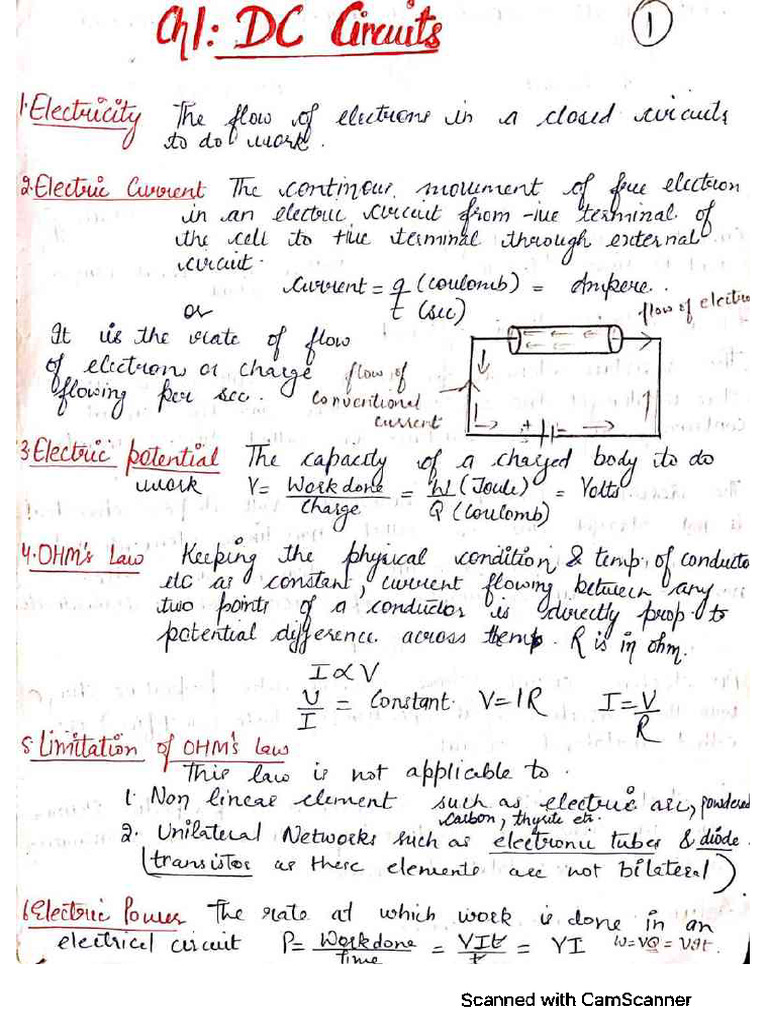 Ch1: DC Circuits
1
1. Electricity The flow of electrons in a closed circuits
to do work.
2. Electric Current The continous movement of free electron
in an electric circuit from -ive terminal of
the cell to +ive terminal through external
circuit.
Current = q (coulomb) = Ampere..
t (sec)
or
flow of electro
It is the rate of flow
of electron or charge
flowing per sec.
flow of
conventional
current
+ -
3. Electric potential The capacity of a charged body to do
work V = Work done = W (Joule) = Volts
Charge Q (Coulomb)
4. OHM's Law Keeping the physical condition & temp. of conducto
etc as constant, current flowing between any
two points of a conductor is directly prop. to
potential difference across them. R is in ohm.
I ∝ V
V = Constant. V = IR I = V
I R
5. Limitation of OHM's Law
This law is not applicable to.
1. Non linear element such as electric arc, powdered
carbon, thyrite etc.
2. Unilateral Networks such as electronic tubes & diode.
(transistor as these elements are not bilateral)
6. Electric Power The rate at which work is done in an
electrical circuit P = Work done = VIt = VI W = VQ = VIt.
Time t
Scanned with CamScanner